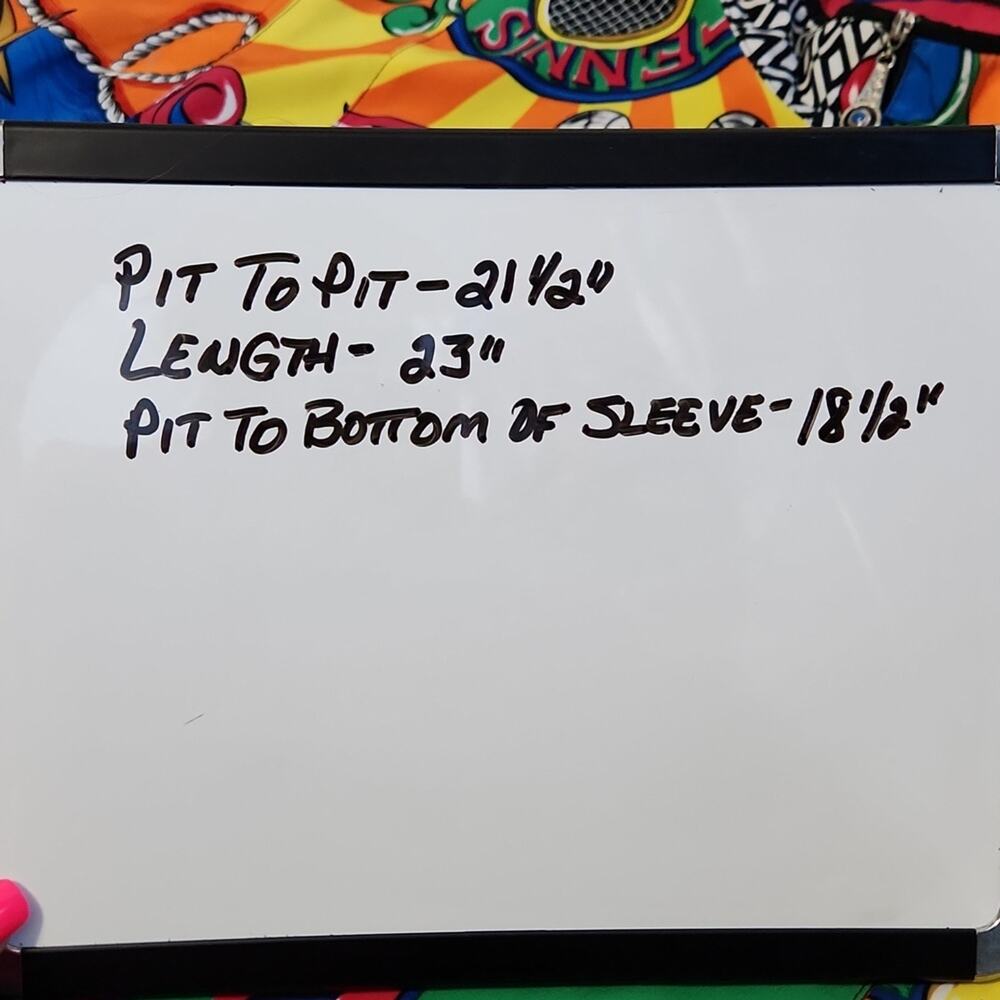 TENNIS
TENNIS
PIT TO PIT - 21 1/2"
LENGTH - 23"
PIT TO BOTTOM OF SLEEVE - 18 1/2"